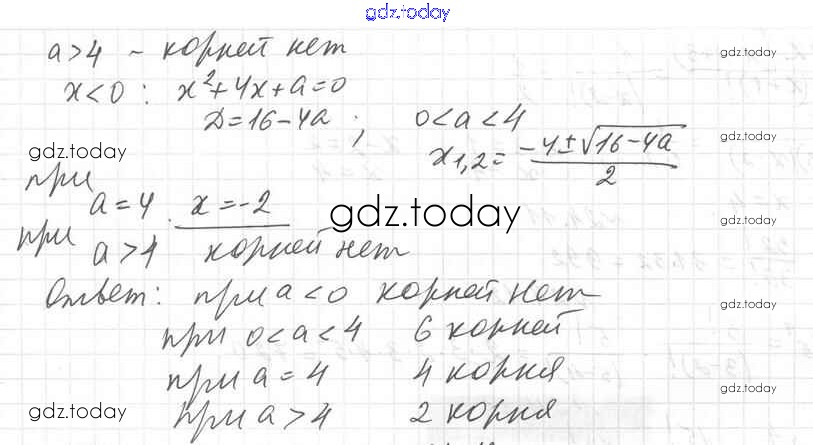 gdz.today
a>4 - корней нет
gdz.today
x<0: x²+4x+a=0
D=16-4a ; 0<a<4
gdz.today
gdz.today
x1,2 = (-4±√16-4a)/2
при a=4 x=-2
gdz.today
gdz.today
при a>4 корней нет
Ответ: при a<0 корней нет
gdz.today
при 0<a<4 6 корней
при a=4 4 корня
gdz.today
gdz.today
при a>4 2 корня